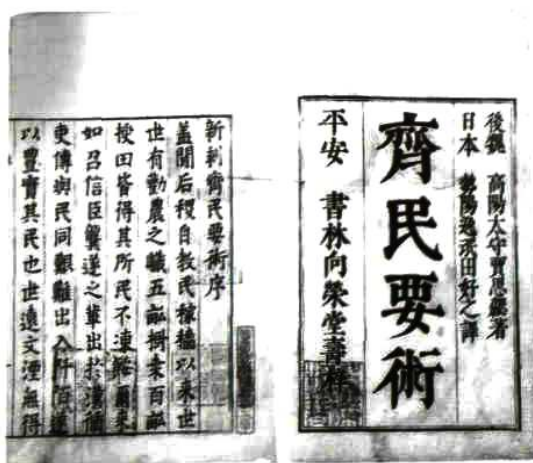 後魏 高陽太守賈思勰著
日本 勢陽逸民田好之譯
齊民要術
平安 書林向榮堂壽梓
新刻齊民要術序
蓋聞后稷自教民稼穡以來世
世有勸農之職五畝樹桑百畝
授田皆得其所民不凍餒爾來
如召信臣龔遂之輩出於漢循
吏傳與民同艱難出入阡陌
以豐實其民也世遠文湮無得